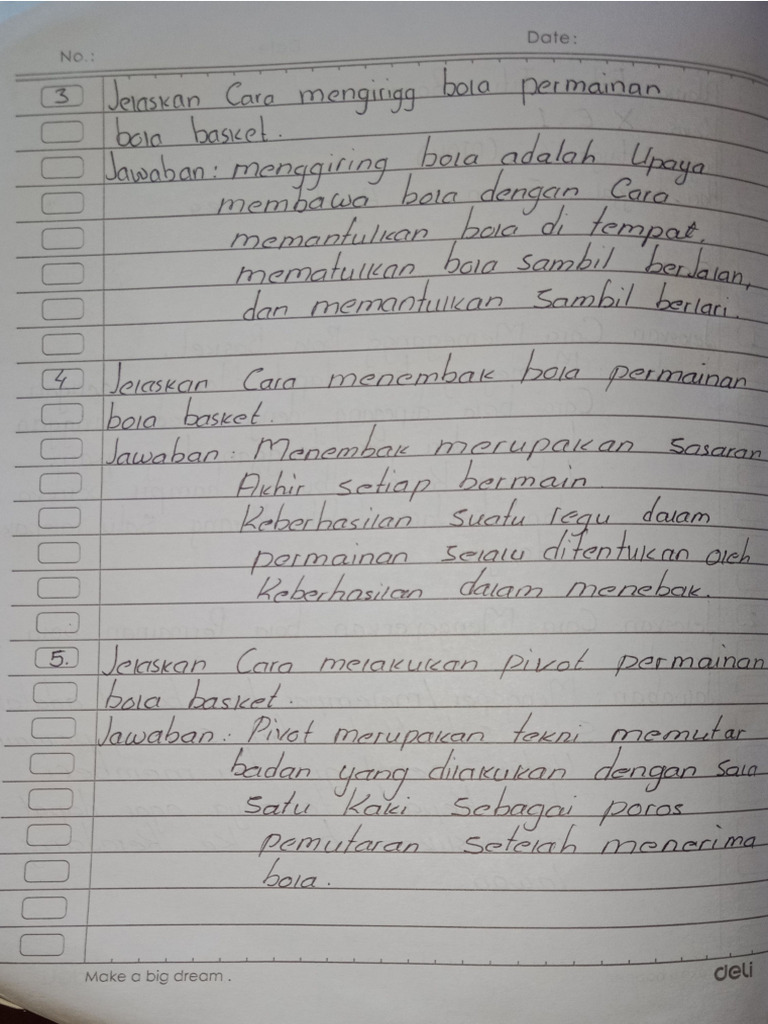 No.:
Date:
3 Jelaskan Cara mengirigg bola permainan
bola basket.
Jawaban: menggiring bola adalah Upaya
membawa bola dengan Cara
memantulkan bola di tempat,
mematulkan bola sambil berJalan,
dan memantulkan sambil berlari.
4 Jelaskan Cara menembak bola permainan
bola basket.
Jawaban: Menembak merupakan sasaran
Akhir setiap bermain
Keberhasilan suatu regu dalam
permainan selalu ditentukan oleh
Keberhasilan dalam menebak.
5. Jelaskan Cara melakukan pivot permainan
bola basket.
Jawaban: Pivot merupakan tekni memutar
badan yang dilakukan dengan sala
satu kaki sebagai poros
pemutaran setelah menerima
bola.
Make a big dream.
deli